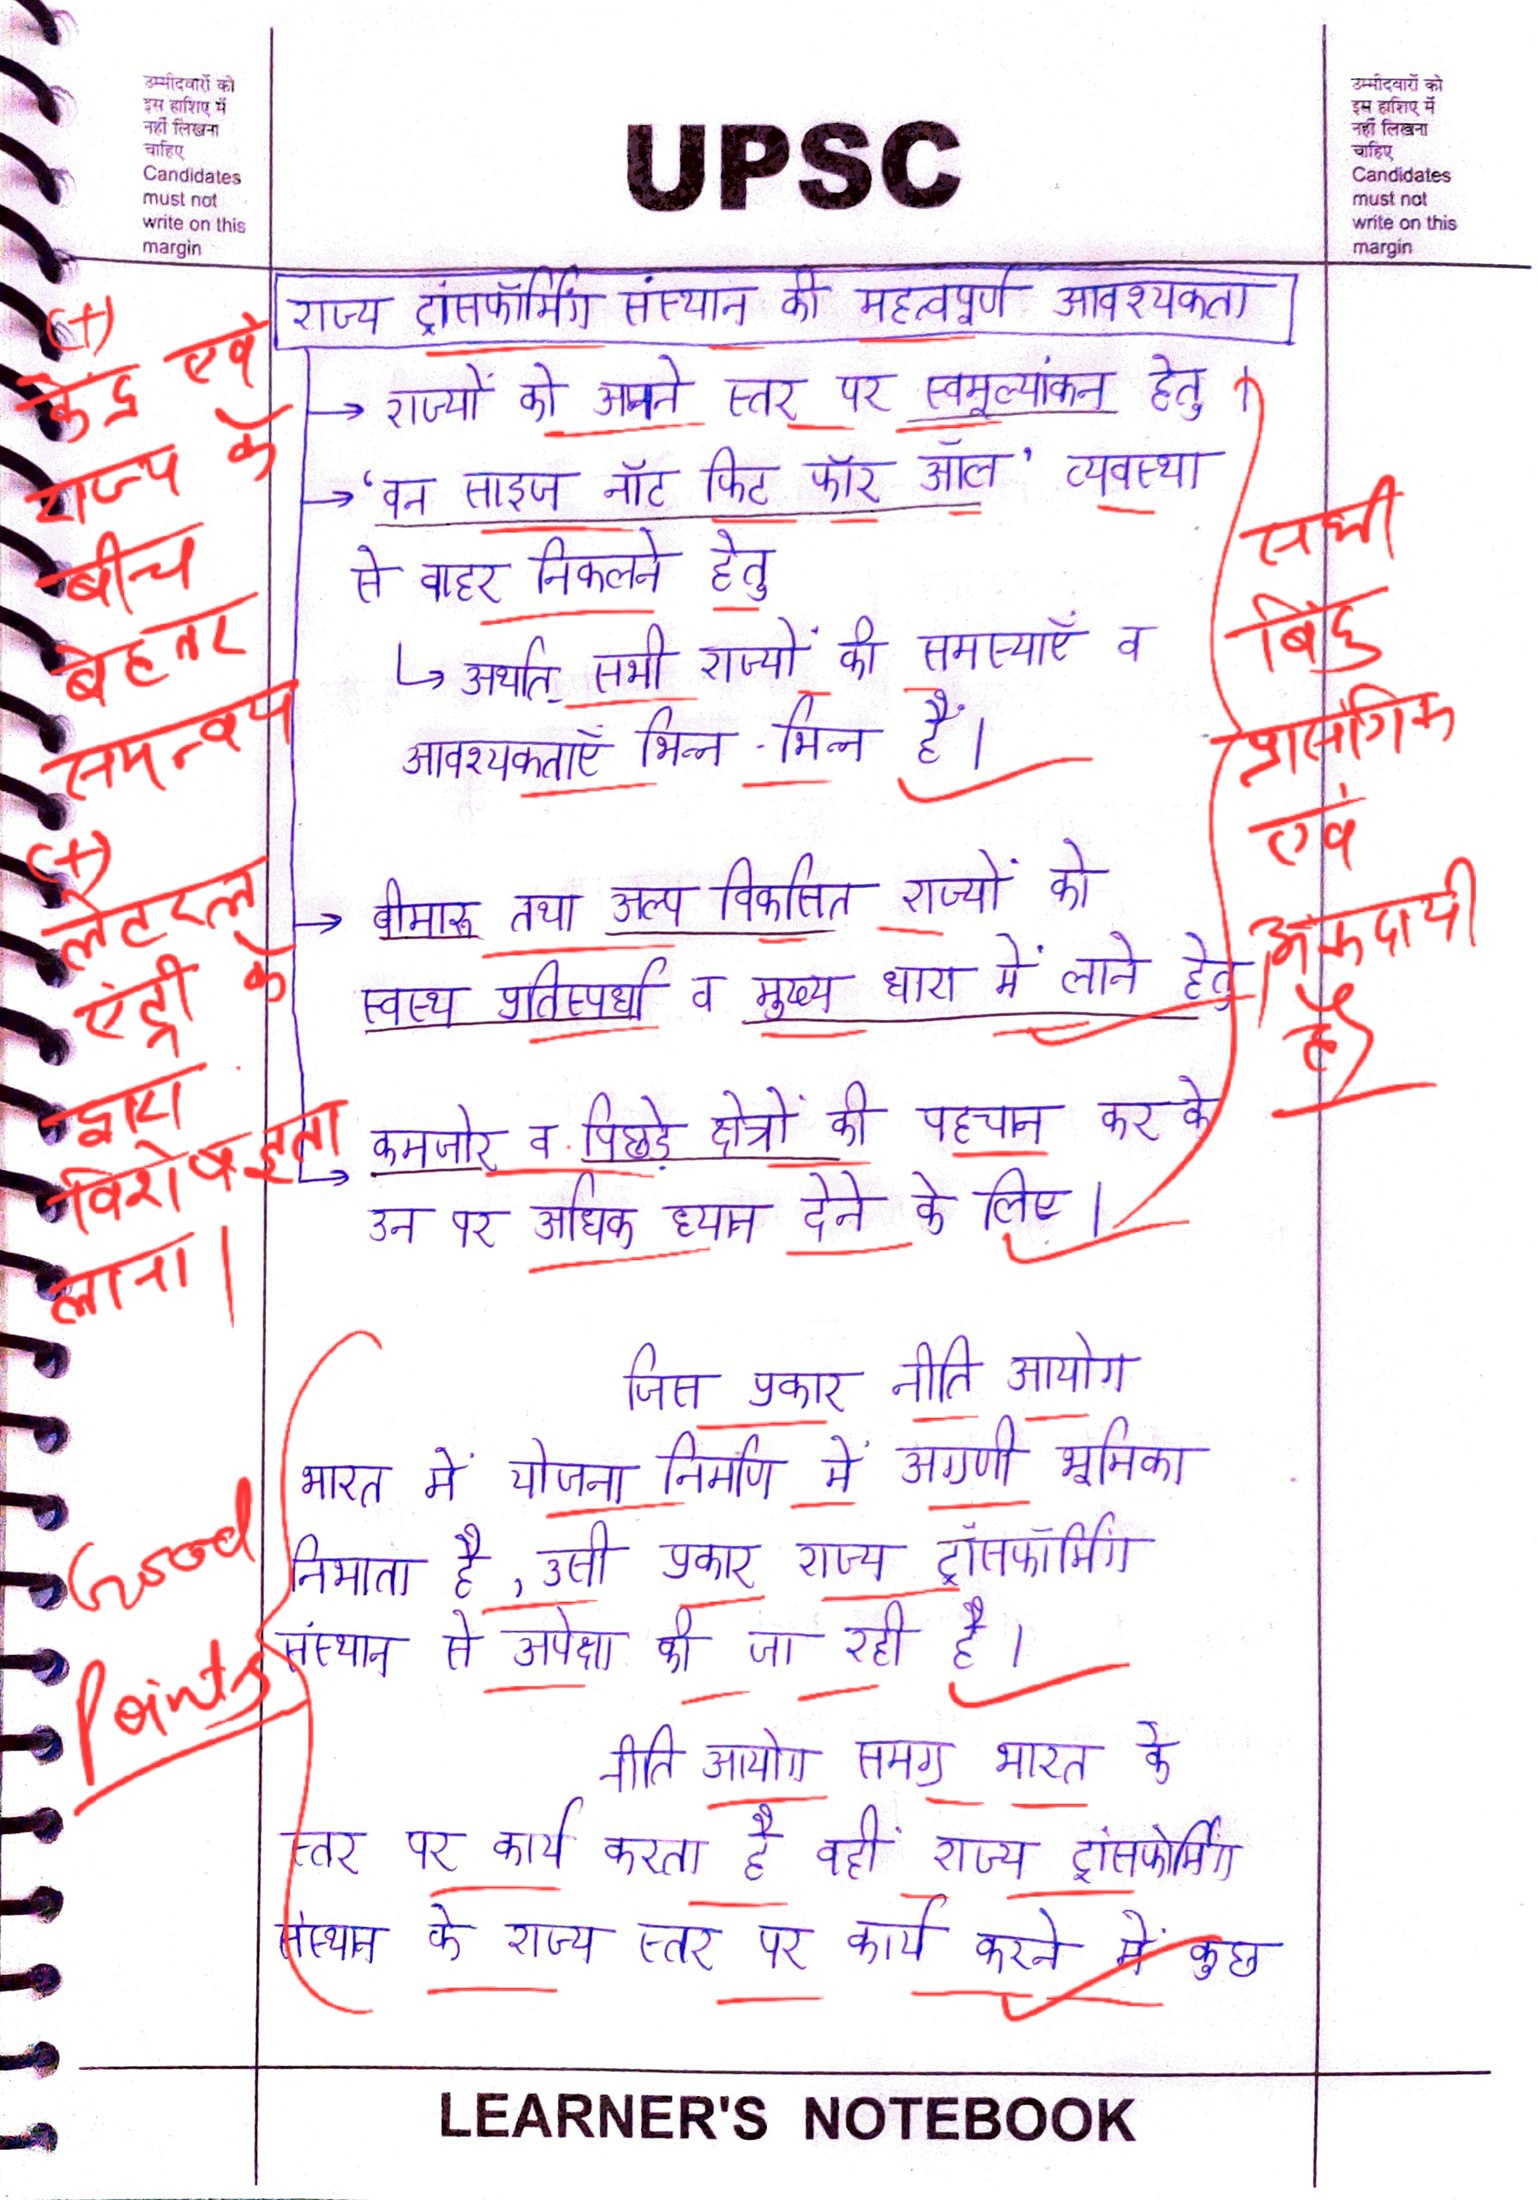 उम्मीदवारों को
इस हाशिए में
नहीं लिखना
चाहिए
Candidates
must not
write on this
margin
UPSC
उम्मीदवारों को
इस हाशिए में
नहीं लिखना
चाहिए
Candidates
must not
write on this
margin
राज्य ट्रांसफॉर्मिंग संस्थान की महत्वपूर्ण आवश्यकता
→ राज्यों को अपने स्तर पर स्वमूल्यांकन हेतु।
→ 'वन साइज नॉट फिट फॉर ऑल' व्यवस्था
से बाहर निकलने हेतु
↳ अर्थात् सभी राज्यों की समस्याएँ व
आवश्यकताएँ भिन्न-भिन्न हैं।
→ बीमारू तथा अल्प विकसित राज्यों को
स्वस्थ प्रतिस्पर्धा व मुख्य धारा में लाने हेतु।
→ कमजोर व पिछड़े क्षेत्रों की पहचान कर के
उन पर अधिक ध्यान देने के लिए।
जिस प्रकार नीति आयोग
भारत में योजना निर्माण में अग्रणी भूमिका
निभाता है, उसी प्रकार राज्य ट्रॉसफॉर्मिंग
संस्थान से अपेक्षा की जा रही है।
नीति आयोग समग्र भारत के
स्तर पर कार्य करता है वहीं राज्य ट्रांसफोर्मिंग
संस्थान के राज्य स्तर पर कार्य करने में कुछ
(+)
केंद्र एवं
राज्य के
बीच
बेहतर
समन्वय
(+)
लेटरल
एंट्री के
द्वारा
विशेषज्ञता
लाना।
Good
Points
सभी
बिंदु
प्रासंगिक
एवं
अंकदायी
हैं
LEARNER'S NOTEBOOK